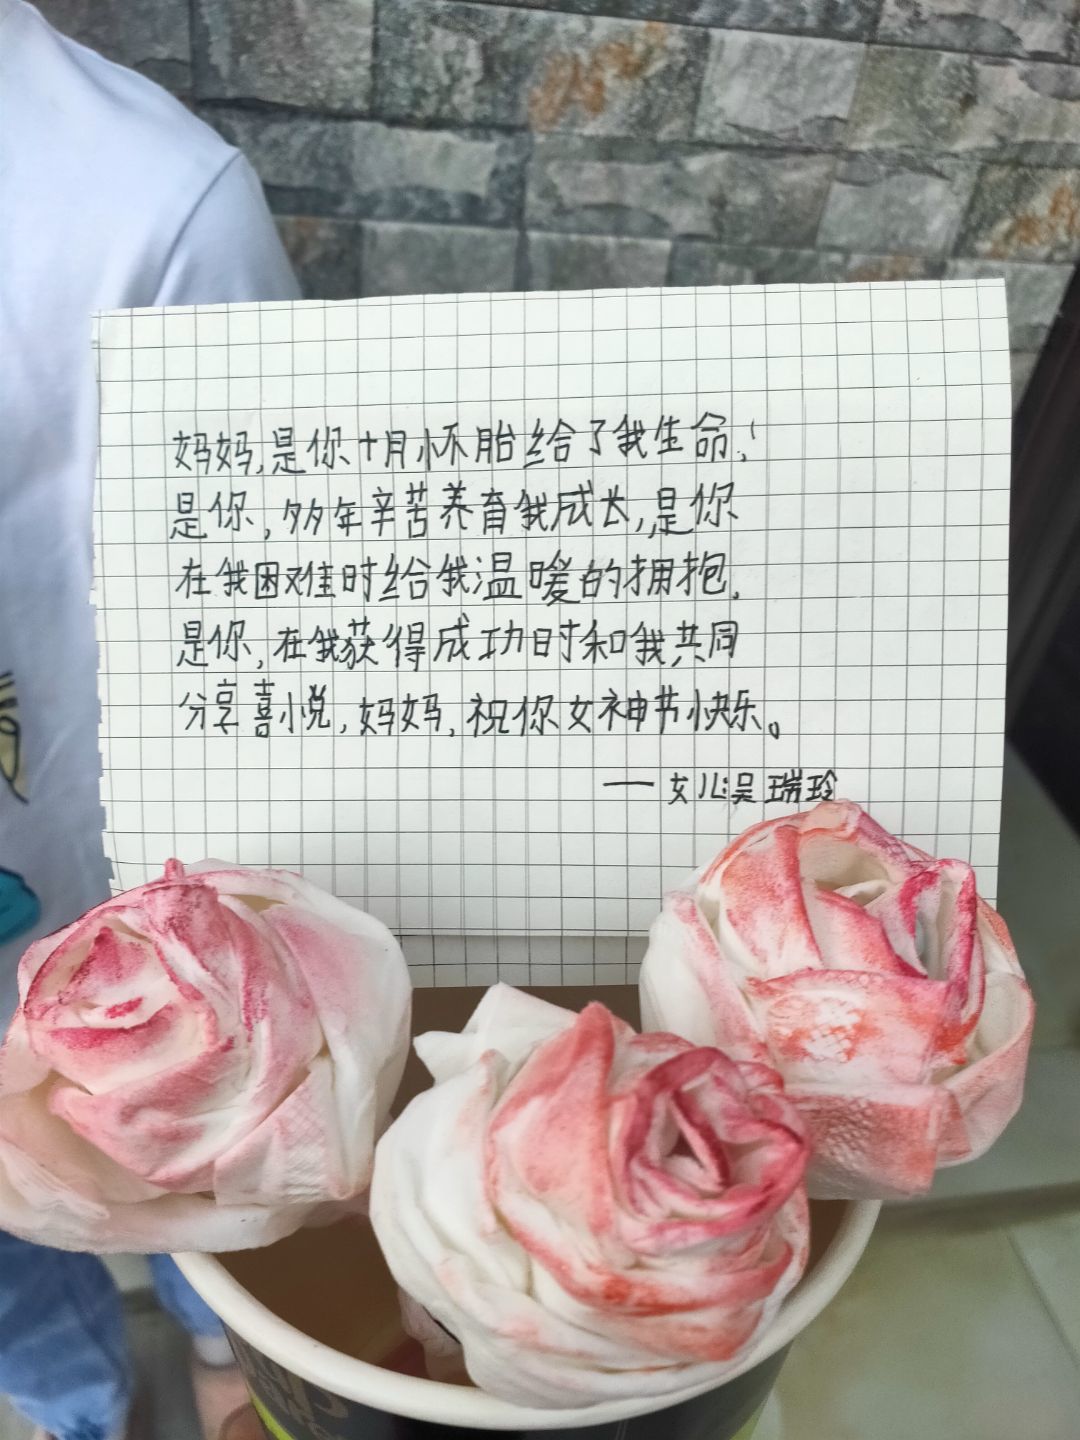 妈妈,是你十月怀胎给了我生命,!
是你,多年辛苦养育我成长,是你
在我困难时给我温暖的拥抱,
是你,在我获得成功时和我共同
分享喜悦,妈妈,祝你女神节快乐。
——女儿:吴瑞玲